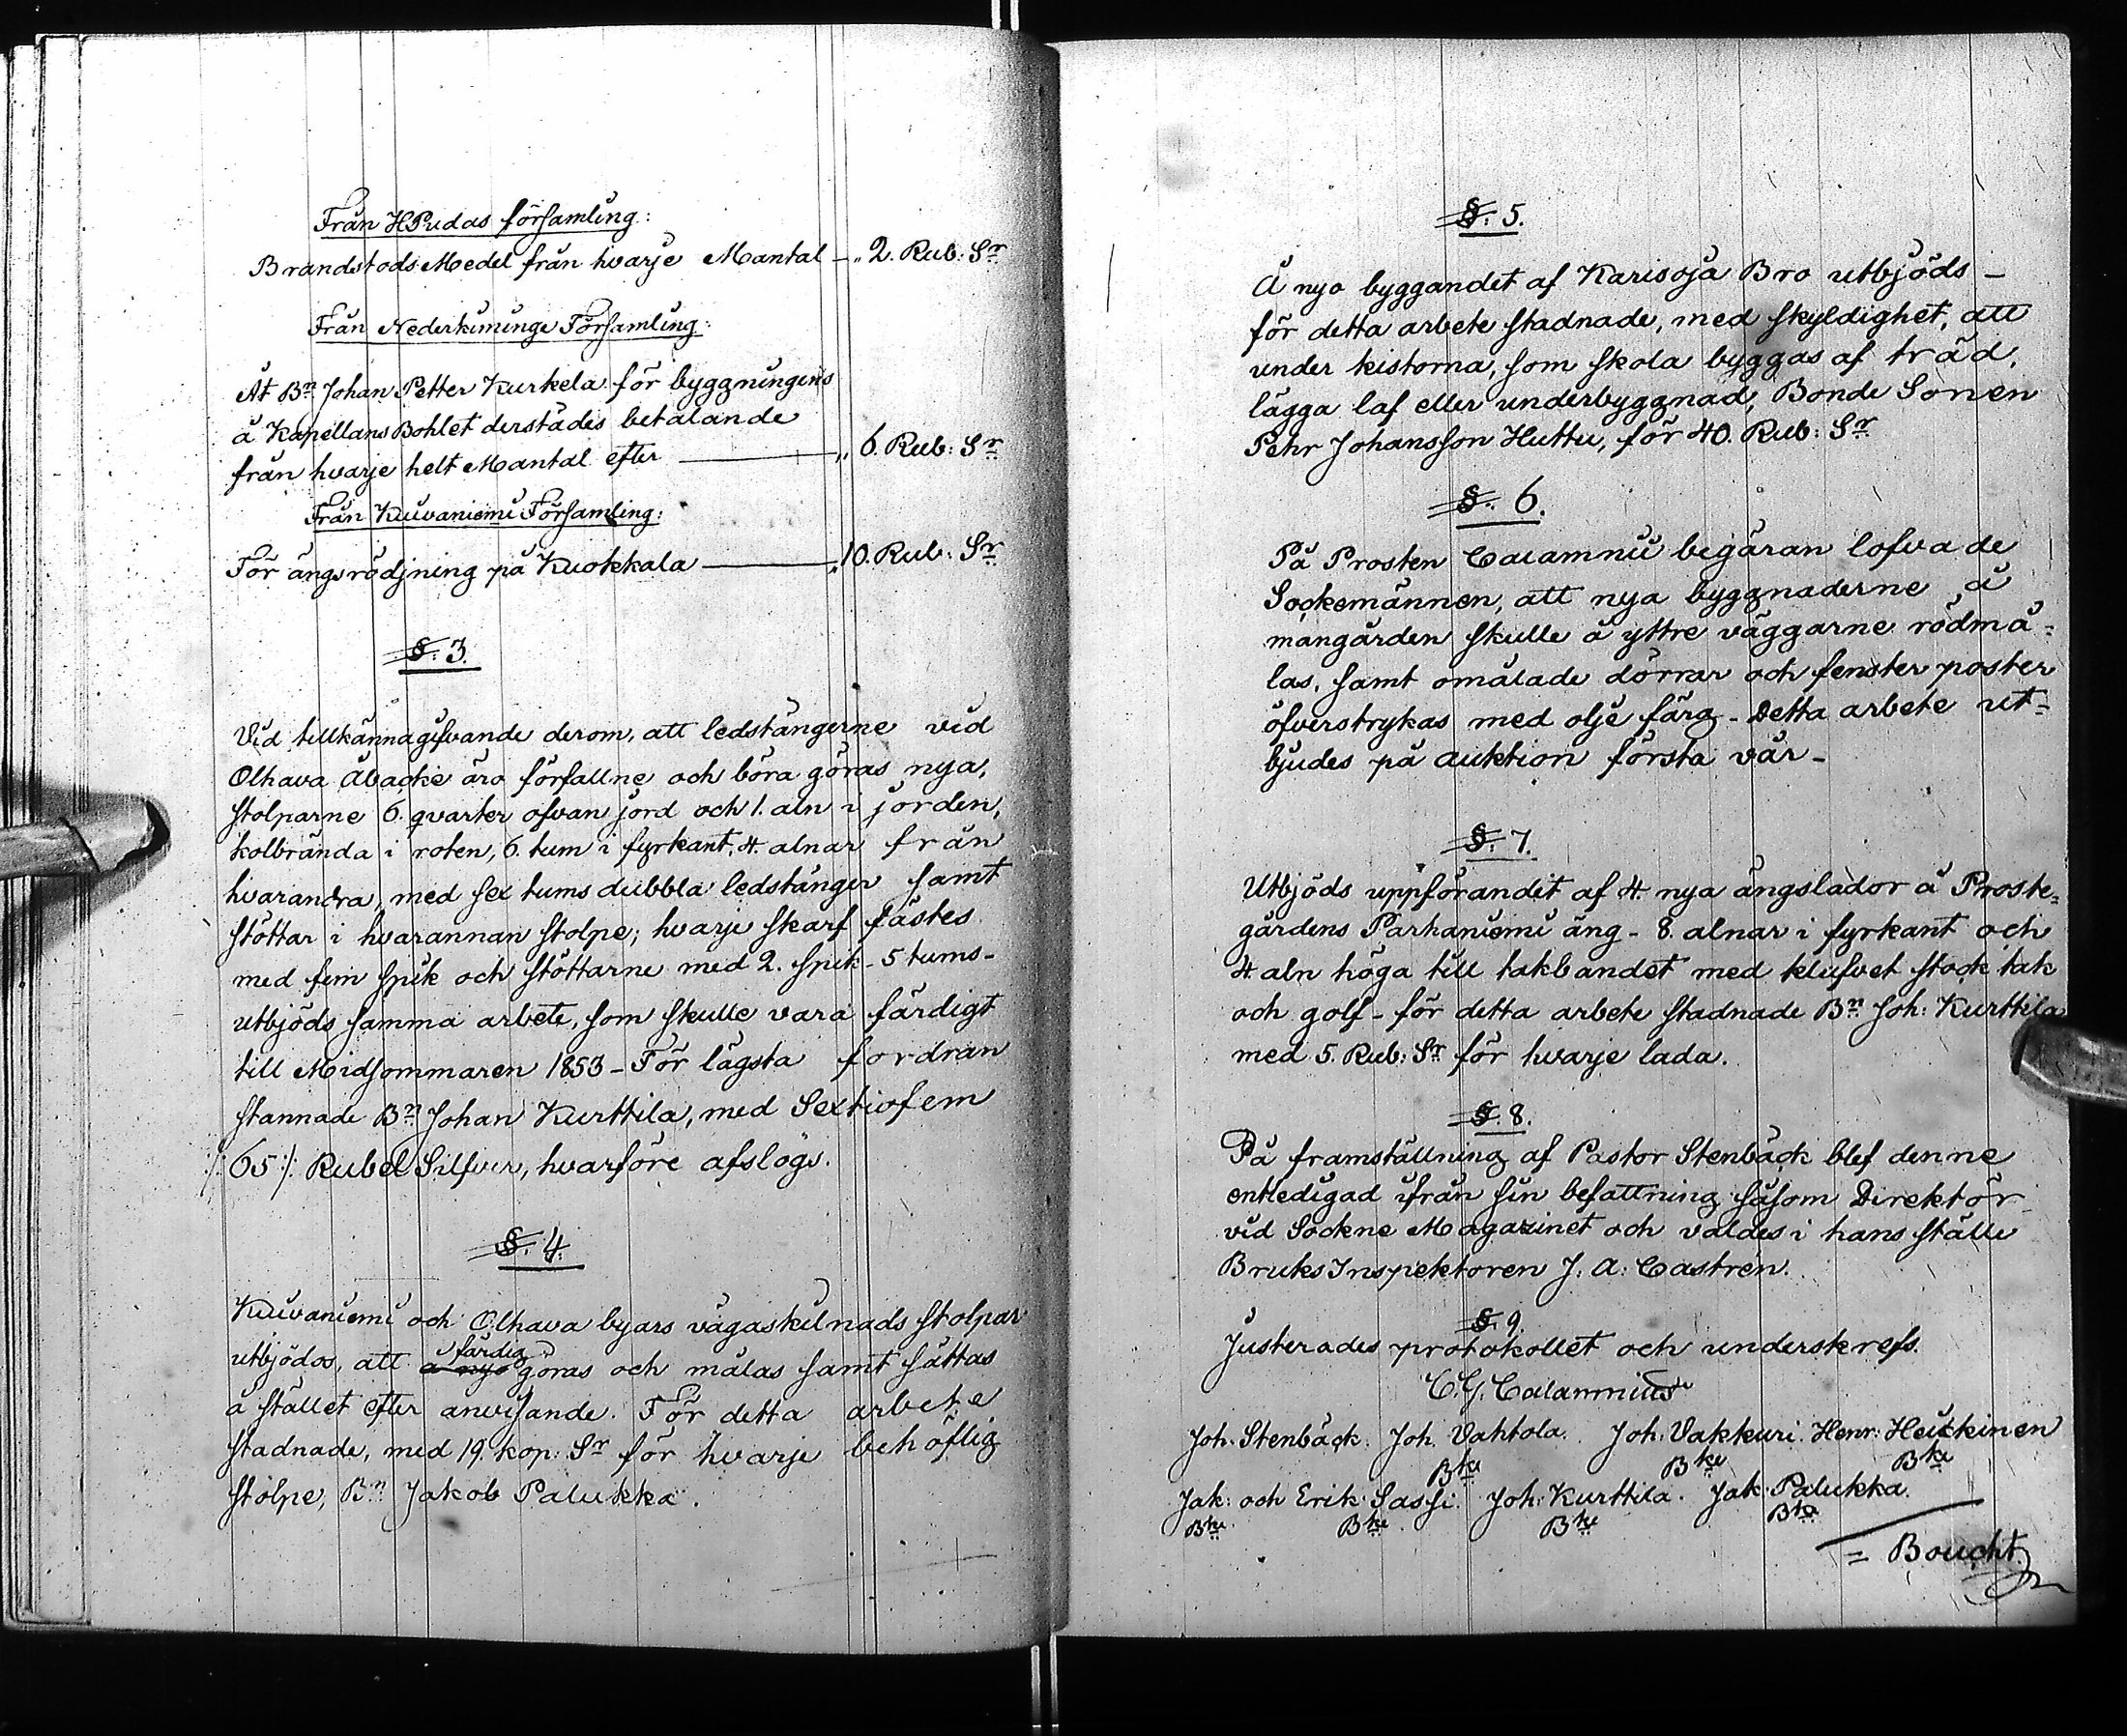 Från HPudas församling:
Brandstods Medel från hvarje Mantal — „ 2. Rub: Sr
Från Nederkiminge Församling:
At Bn Johan Petter Kurkela för byggningens
å Kapellans Bohlet derstädes betalande
från hvarje helt Mantal efter — „ 6. Rub: Sr
Från Kuivaniemi Församling:
För ängsrödjning på Kuokkala — „ 10. Rub: Sr
§. 3.
Vid tillkännagifvande derom, att ledstängerne vid
Olhava Åbacke äro förfallne och böra göras nya,
stolparne 6. qvarter ofvan jord och 1. aln i jorden,
kolbrända i roten, 6. tum i fyrkant, 4. alnar från
hvarandra, med sex tums dubbla ledstänger samt
stöttar i hvarannan stolpe; hvarje skarf fästes
med fem spik och stöttarne med 2. spik - 5 tums -
utbjöds samma arbete, som skulle vara färdigt
till Midsommaren 1853 - För lägsta fordran
stannade Bn Johan Kurttila, med Sextiofem
/: 65 :/ Rubel Silfver, hvarföre afslogs.
§. 4.
Kuivaniemi och Olhava byars vägaskilnads stolpar
utbjödos, att å nyo färdig göras och målas samt sättas
å stället efter anvisande. För detta arbete
stadnade, med 19. kop: Sr för hvarje behöflig
stolpe, Bn Jakob Palukka.
§. 5.
Å nyo byggandet af Karisoja Bro utbjöds -
för detta arbete stadnade, med skyldighet, att
under kistorna, som skola byggas af träd,
lägga laf eller underbyggnad, Bonde Sonen
Pehr Johansson Huttu, för 40. Rub: Sr
§. 6.
På Prosten Calamnii begäran lofvade
Sockemännen, att nya byggnaderne å
mangården skulle å yttre väggarne rödmå=
las, samt omålade dörrar och fenster poster
öfverstrykas med olje färg - Detta arbete ut=
bjudes på auktion första vår -
§. 7.
Utbjöds uppförandet af 4. nya ängslador å Proste=
gårdens Parhaniemi äng - 8. alnar i fyrkant och
4 aln höga till takbandet med klufvet stock tak
och golf - för detta arbete stadnade Bn Joh: Kurttila
med 5. Rub: Sr för hvarje lada.
§. 8.
På framställning af Pastor Stenbäck blef denne
entledigad ifrån sin befattning såsom Direktör
vid Sockne Magazinet och valdes i hans ställe
Bruks Inspektoren J: A: Castrén.
§. 9.
Justerades protokollet och underskrefs.
C. G. Calamnius
Joh. Stenbäck. Joh. Vahtola. Joh: Vakkuri. Henr: Heickinen
Bke Bke Bke
Jak: och Erik Sassi. Joh: Kurttila. Jak: Palukka.
Bke Bke Bke Bke
= Boucht.